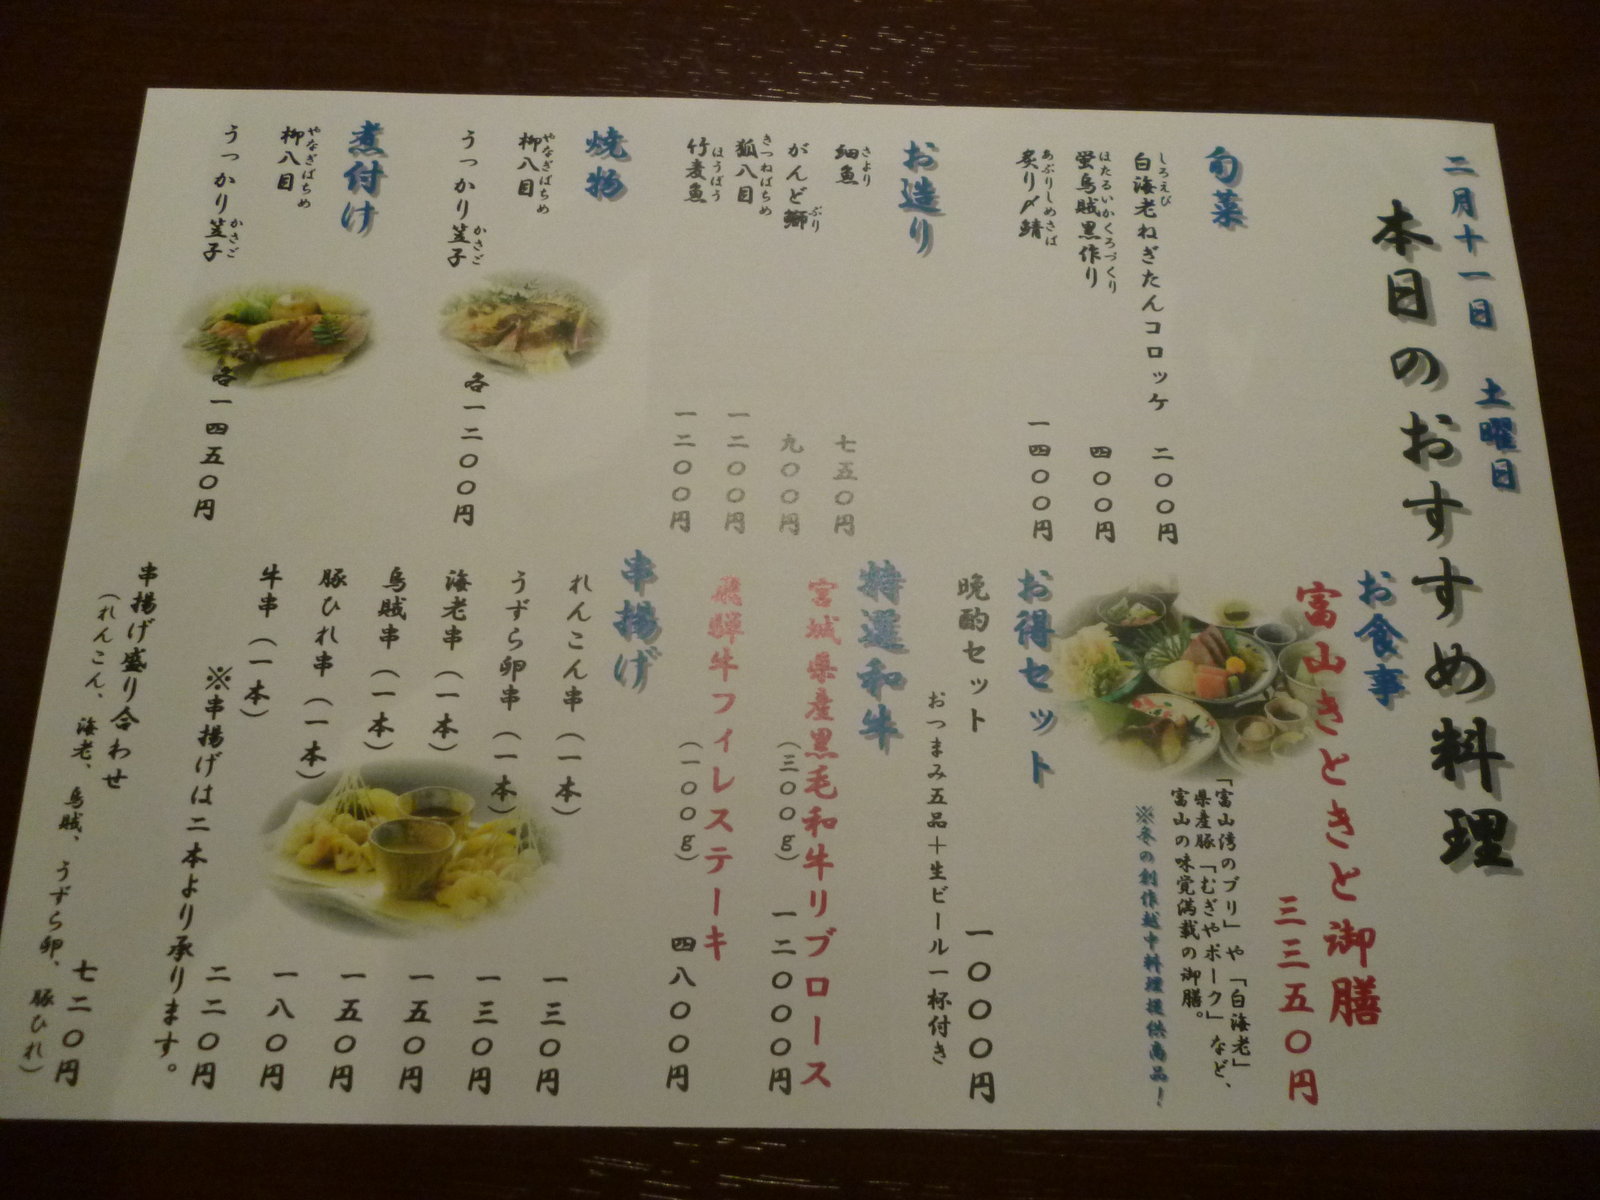 二月十一日 土曜日
本日のおすすめ料理
旬菜
白海老ねぎたんコロッケ 二〇〇円
しろえび
蛍烏賊黒作り 四〇〇円
ほたるいかくろづくり
炙り〆鯖 一四〇〇円
あぶりしめさば
お造り
細魚 七五〇円
さより
がんど鰤 九〇〇円
ぶり
狐八目 一二〇〇円
きつねばちめ
竹麦魚 一二〇〇円
ほうぼう
焼物
柳八目
やなぎばちめ
うっかり笠子
かさご
各一二〇〇円
煮付け
柳八目
やなぎばちめ
うっかり笠子
かさご
各一四五〇円
お食事
富山きときと御膳
三三五〇円
「富山湾のブリ」や「白海老」
県産豚「むぎやポーク」など、
富山の味覚満載の御膳。
※冬の創作越中料理提供商品！
お得セット
晩酌セット 一〇〇〇円
おつまみ五品＋生ビール一杯付き
特選和牛
宮城県産黒毛和牛リブロース
（三〇〇g） 一二〇〇〇円
飛騨牛フィレステーキ
（一〇〇g） 四八〇〇円
串揚げ
れんこん串（一本） 一三〇円
うずら卵串（一本） 一三〇円
海老串（一本） 一五〇円
烏賊串（一本） 一五〇円
豚ひれ串（一本） 一八〇円
牛串（一本） 二二〇円
※串揚げは二本より承ります。
串揚げ盛り合わせ 七二〇円
（れんこん、海老、烏賊、うずら卵、豚ひれ）